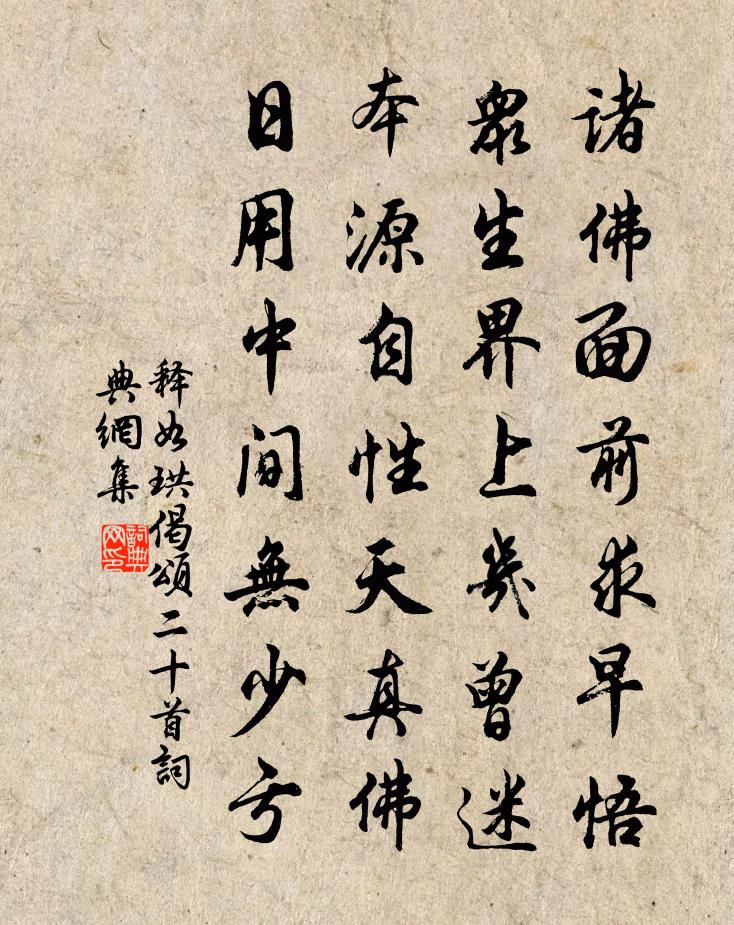 諸佛面前求早悟
衆生界上幾曾迷
本源自性天真佛
日用中間無少亏
释如珙偈頌二十首詞
典網集
詞典
网印